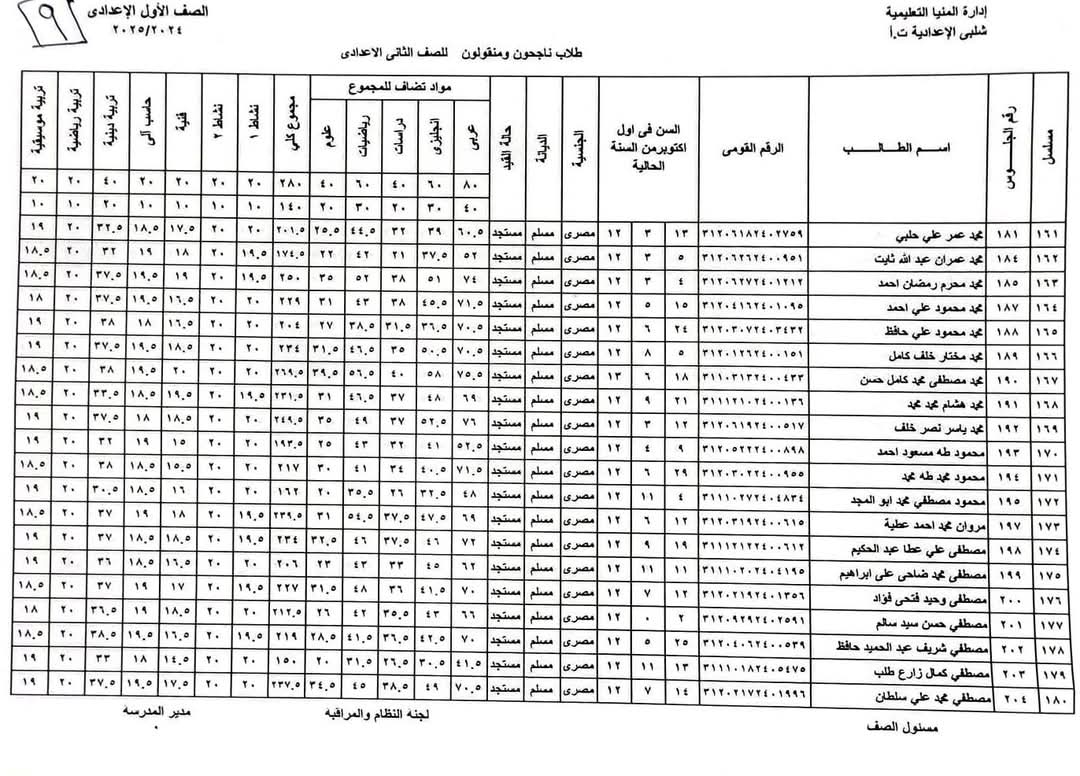 إدارة المنيا التعليمية
شلبى الإعدادية ت.أ
الصف الأول الإعدادى
٢٠٢٥/٢٠٢٤
٩
طلاب ناجحون ومنقولون للصف الثانى الاعدادى
مسلسل رقم الجلوس اسم الطالب الرقم القومى السن فى اول اكتوبرمن السنة الحالية الجنسية الديانة حالة القيد مواد تضاف للمجموع عربى انجليزى دراسات رياضيات علوم مجموع كلي نشاط ١ نشاط ٢ فنية حاسب آلى تربية دينية تربية رياضية تربية موسيقية
٨٠ ٦٠ ٤٠ ٦٠ ٤٠ ٢٨٠ ٢٠ ٢٠ ٢٠ ٢٠ ٤٠ ٢٠ ٢٠
٤٠ ٣٠ ٢٠ ٣٠ ٢٠ ١٤٠ ١٠ ١٠ ١٠ ١٠ ٢٠ ١٠ ١٠
١٦١ ١٨١ محمد عمر علي حلبي ٣١٢٠٦١٨٢٤٠٢٧٥٩ ١٣ ٣ ١٢ مصرى مسلم مستجد ٦٠.٥ ٣٩ ٣٢ ٤٤.٥ ٢٥.٥ ٢٠١.٥ ٢٠ ٢٠ ١٧.٥ ١٨.٥ ٣٢.٥ ٢٠ ١٩
١٦٢ ١٨٤ محمد عمران عبد الله ثابت ٣١٢٠٦٢٦٢٤٠٠٩٥١ ٥ ٣ ١٢ مصرى مسلم مستجد ٥٢ ٣٧.٥ ٢١ ٤٢ ٢٢ ١٧٤.٥ ١٩.٥ ٢٠ ١٨ ١٩ ٣٢ ٢٠ ١٨.٥
١٦٣ ١٨٥ محمد محرم رمضان احمد ٣١٢٠٦٢٧٢٤٠١٢١٢ ٤ ٣ ١٢ مصرى مسلم مستجد ٧٤ ٥١ ٣٨ ٥٢ ٣٥ ٢٥٠ ١٩.٥ ٢٠ ١٩ ١٩.٥ ٣٧.٥ ٢٠ ١٨.٥
١٦٤ ١٨٧ محمد محمود علي احمد ٣١٢٠٤١٦٢٤٠١٠٩٥ ١٥ ٥ ١٢ مصرى مسلم مستجد ٧١.٥ ٤٥.٥ ٣٨ ٤٣ ٣١ ٢٢٩ ٢٠ ٢٠ ١٦.٥ ١٩.٥ ٣٧.٥ ٢٠ ١٨
١٦٥ ١٨٨ محمد محمود علي حافظ ٣١٢٠٣٠٧٢٤٠٣٤٣٢ ٢٤ ٦ ١٢ مصرى مسلم مستجد ٧٠.٥ ٣٦.٥ ٣١.٥ ٣٨.٥ ٢٧ ٢٠٤ ٢٠ ٢٠ ١٦.٥ ١٨ ٣٨ ٢٠ ١٩
١٦٦ ١٨٩ محمد مختار خلف كامل ٣١٢٠١٢٦٢٤٠٠١٥١ ٥ ٨ ١٢ مصرى مسلم مستجد ٧٠.٥ ٥٠.٥ ٣٥ ٤٦.٥ ٣١.٥ ٢٣٤ ٢٠ ٢٠ ١٨.٥ ١٩.٥ ٣٧.٥ ٢٠ ١٩
١٦٧ ١٩٠ محمد مصطفى محمد كامل حسن ٣١١٠٣١٣٢٤٠٠٤٣٣ ١٨ ٦ ١٣ مصرى مسلم مستجد ٧٥.٥ ٥٨ ٤٠ ٥٦.٥ ٣٩.٥ ٢٦٩.٥ ٢٠ ٢٠ ٢٠ ١٩.٥ ٣٨ ٢٠ ١٨.٥
١٦٨ ١٩١ محمد هشام محمد محمد ٣١١١٢١٠٢٤٠٠١٣٦ ٢١ ٩ ١٢ مصرى مسلم مستجد ٦٩ ٤٨ ٣٧ ٤٦.٥ ٣١ ٢٣١.٥ ١٩.٥ ٢٠ ١٩.٥ ١٨.٥ ٣٣.٥ ٢٠ ١٨.٥
١٦٩ ١٩٢ محمد ياسر نصر خلف ٣١٢٠٦١٩٢٤٠٠٥١٧ ١٢ ٣ ١٢ مصرى مسلم مستجد ٧٦ ٥٢.٥ ٣٧ ٤٩ ٣٥ ٢٤٩.٥ ٢٠ ٢٠ ١٨.٥ ١٨ ٣٧.٥ ٢٠ ١٩
١٧٠ ١٩٣ محمود طه مسعود احمد ٣١٢٠٥٢٢٢٤٠٠٨٩٨ ٩ ٤ ١٢ مصرى مسلم مستجد ٥٢.٥ ٤١ ٣٢ ٤٣ ٢٥ ١٩٣.٥ ٢٠ ٢٠ ١٥ ١٩ ٣٢ ٢٠ ١٩
١٧١ ١٩٤ محمود محمد طه محمد ٣١٢٠٣٠٢٢٤٠٠٩٥٥ ٢٩ ٦ ١٢ مصرى مسلم مستجد ٧١.٥ ٤٠.٥ ٣٤ ٤١ ٣٠ ٢١٧ ٢٠ ٢٠ ١٥.٥ ١٨.٥ ٣٨ ٢٠ ١٨.٥
١٧٢ ١٩٥ محمود مصطفي محمد ابو المجد ٣١١١٠٢٧٢٤٠٤٨٣٤ ٤ ١١ ١٢ مصرى مسلم مستجد ٤٨ ٣٢.٥ ٢٦ ٣٥.٥ ٢٠ ١٦٢ ٢٠ ٢٠ ١٦ ١٨.٥ ٣٠.٥ ٢٠ ١٩
١٧٣ ١٩٧ مروان محمد احمد عطية ٣١٢٠٣١٩٢٤٠٠٦١٥ ١٢ ٦ ١٢ مصرى مسلم مستجد ٦٩ ٤٧.٥ ٣٧.٥ ٥٤.٥ ٣١ ٢٣٩.٥ ١٩.٥ ٢٠ ١٨ ١٩ ٣٧ ٢٠ ١٨.٥
١٧٤ ١٩٨ مصطفي علي عطا عبد الحكيم ٣١١١٢١٢٢٤٠٠٦١٢ ١٩ ٩ ١٢ مصرى مسلم مستجد ٧٢ ٤٦ ٣٧.٥ ٤٦ ٣٢.٥ ٢٣٤ ١٩.٥ ٢٠ ١٨.٥ ١٨.٥ ٣٧ ٢٠ ١٩
١٧٥ ١٩٩ مصطفى محمد ضاحى على ابراهيم ٣١١١٠٢٠٢٤٠٤١٩٥ ١١ ١١ ١٢ مصرى مسلم مستجد ٦٢ ٤٥ ٣٣ ٤٣ ٢٣ ٢٠٦ ٢٠ ٢٠ ١٦.٥ ١٨.٥ ٣٦ ٢٠ ١٩
١٧٦ ٢٠٠ مصطفى وحيد فتحى فؤاد ٣١٢٠٢١٩٢٤٠١٣٥٦ ١٢ ٧ ١٢ مصرى مسلم مستجد ٧٠.٥ ٤١ ٣٦ ٤٨ ٣١.٥ ٢٢٧ ١٩.٥ ٢٠ ١٧ ١٩ ٣٧ ٢٠ ١٨.٥
١٧٧ ٢٠١ مصطفي حسن سيد سالم ٣١٢٠٩٢٩٢٤٠٢٥٩١ ٢ ٠ ١٢ مصرى مسلم مستجد ٦٦ ٤٣ ٣٥.٥ ٤٢ ٢٦ ٢١٢.٥ ٢٠ ٢٠ ١٨.٥ ١٩ ٣٦.٥ ٢٠ ١٨
١٧٨ ٢٠٢ مصطفي شريف عبد الحميد حافظ ٣١٢٠٤٠٦٢٤٠٠٥٣٩ ٢٥ ٥ ١٢ مصرى مسلم مستجد ٧٠ ٤٢.٥ ٣٦.٥ ٤١.٥ ٢٨.٥ ٢١٩ ١٩.٥ ٢٠ ١٦.٥ ١٩.٥ ٣٨.٥ ٢٠ ١٨.٥
١٧٩ ٢٠٣ مصطفي كمال زارع طلب ٣١١١٠١٨٢٤٠٥٤٧٥ ١٣ ١١ ١٢ مصرى مسلم مستجد ٤١.٥ ٣٠.٥ ٢٦.٥ ٣١.٥ ٢٠ ١٥٠ ٢٠ ٢٠ ١٤.٥ ١٨ ٣٣ ٢٠ ١٩
١٨٠ ٢٠٤ مصطفي محمد علي سلطان ٣١٢٠٢١٧٢٤٠١٩٩٦ ١٤ ٧ ١٢ مصرى مسلم مستجد ٧٠.٥ ٤٩ ٣٨.٥ ٤٥ ٣٤.٥ ٢٣٧.٥ ٢٠ ٢٠ ١٧.٥ ١٩.٥ ٣٧.٥ ٢٠ ١٩
مسئول الصف لجنة النظام والمراقبة مدير المدرسة